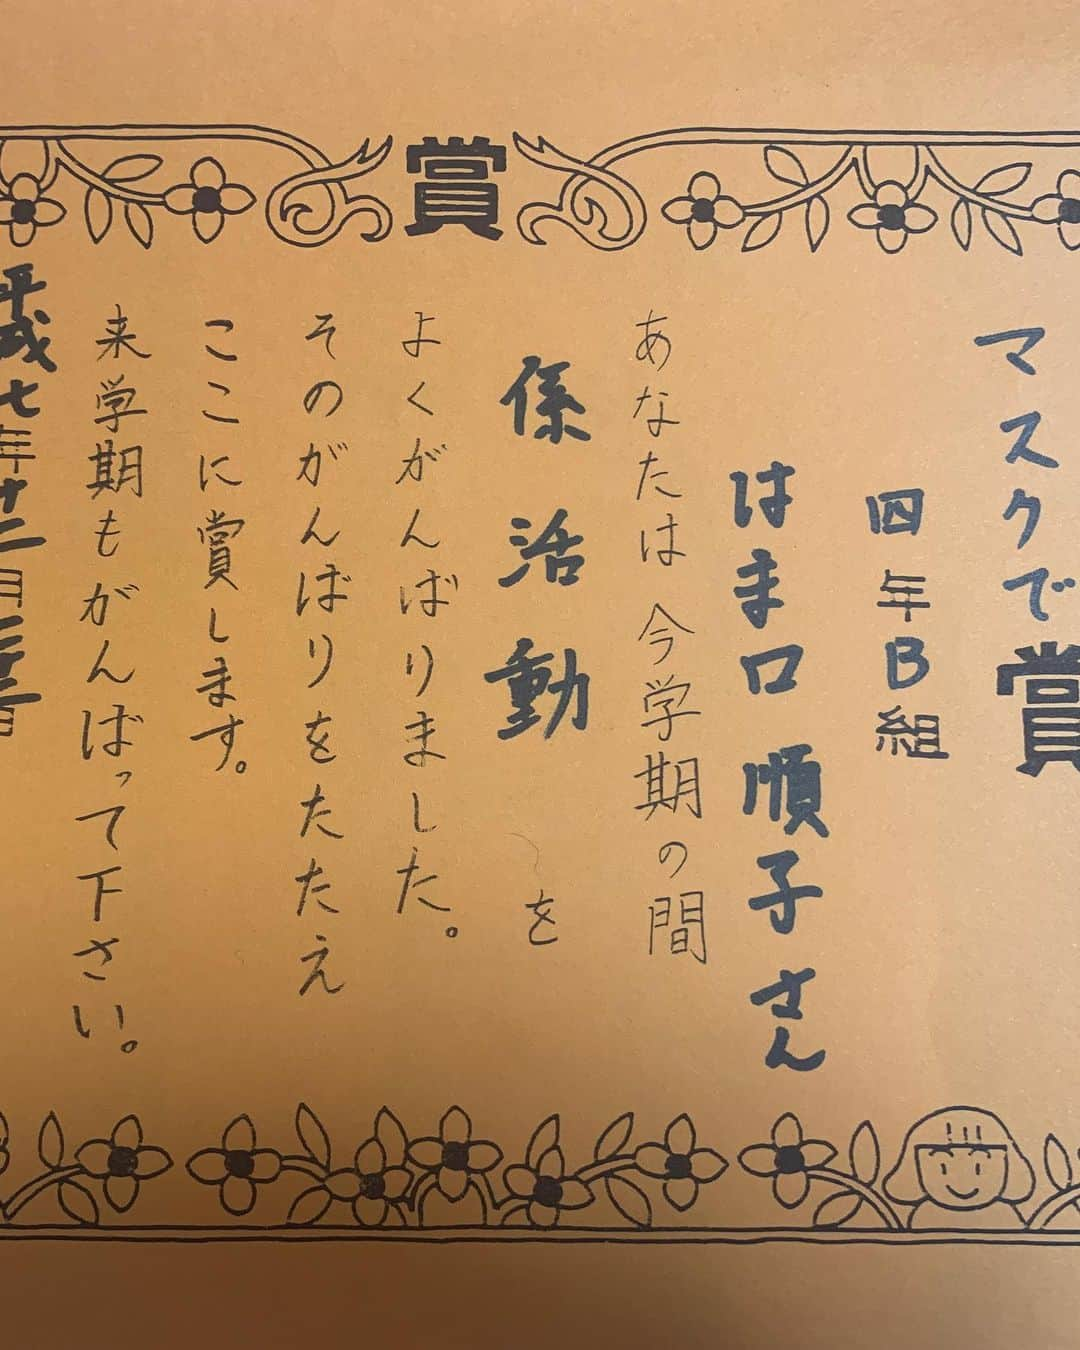 賞
マスクで賞
四年B組
はま口 順子さん
あなたは今学期の間
係活動を
よくがんばりました。
そのがんばりをたたえ
ここに賞します。
来学期もがんばって下さい。
平成七年十二月二十二日